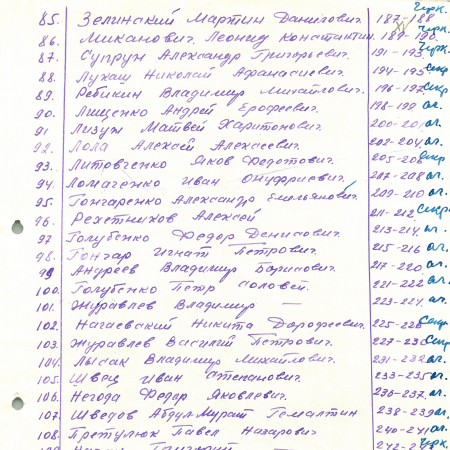 85. Зелинский Мартин Данилович. 187-188 Чрк.
86. Миканович Леонид Константин. 189-190.
87. Супрун Александр Григорьевич. 191-193 Чрк.
88. Лукаш Николай Афанасиевич. 194-195 Скр
89. Ребикин Владимир Михайлович. 196-197 Скр
90. Лищенко Андрей Ерофеевич. 198-199 ог.
91 Лизун Матвей Харитонович. 200-201 ог.
92. Лола Алексей Алексеевич. 202-204 ог.
93. Литовченко Яков Федотович. 205-206 Скр
94. Ломаченко Иван Онуфриевич. 207-208 ог.
95. Гончаренко Александр Емельянович 209-210 ог.
96. Рехетников Алексей 211-212 Скр.
97 Голубенко Федор Денисович. 213-214 ог.
98. Гончар Игнат Петрович. 215-216 ог.
99 Андреев Владимир Борисович. 217-220 ог.
100. Голубенко Петр Соловей. 221-222 ог.
101. Журавлев Владимир — 223-224 ог.
102. Нагаевский Никита Дорофеевич. 225-226 Скр
103. Журавлев Василий Петрович. 227-230 Скр
104. Лысак Владимир Михайлович. 231-232 ог.
105. Швец Иван Степанович. 233-235 ог.
106. Негода Федор Яковлевич. 236-237 ог.
107. Шведов Абдул-Мурат Гемалтин 238-239 ог.
108. Претулюк Павел Назарович 240-241 ог.